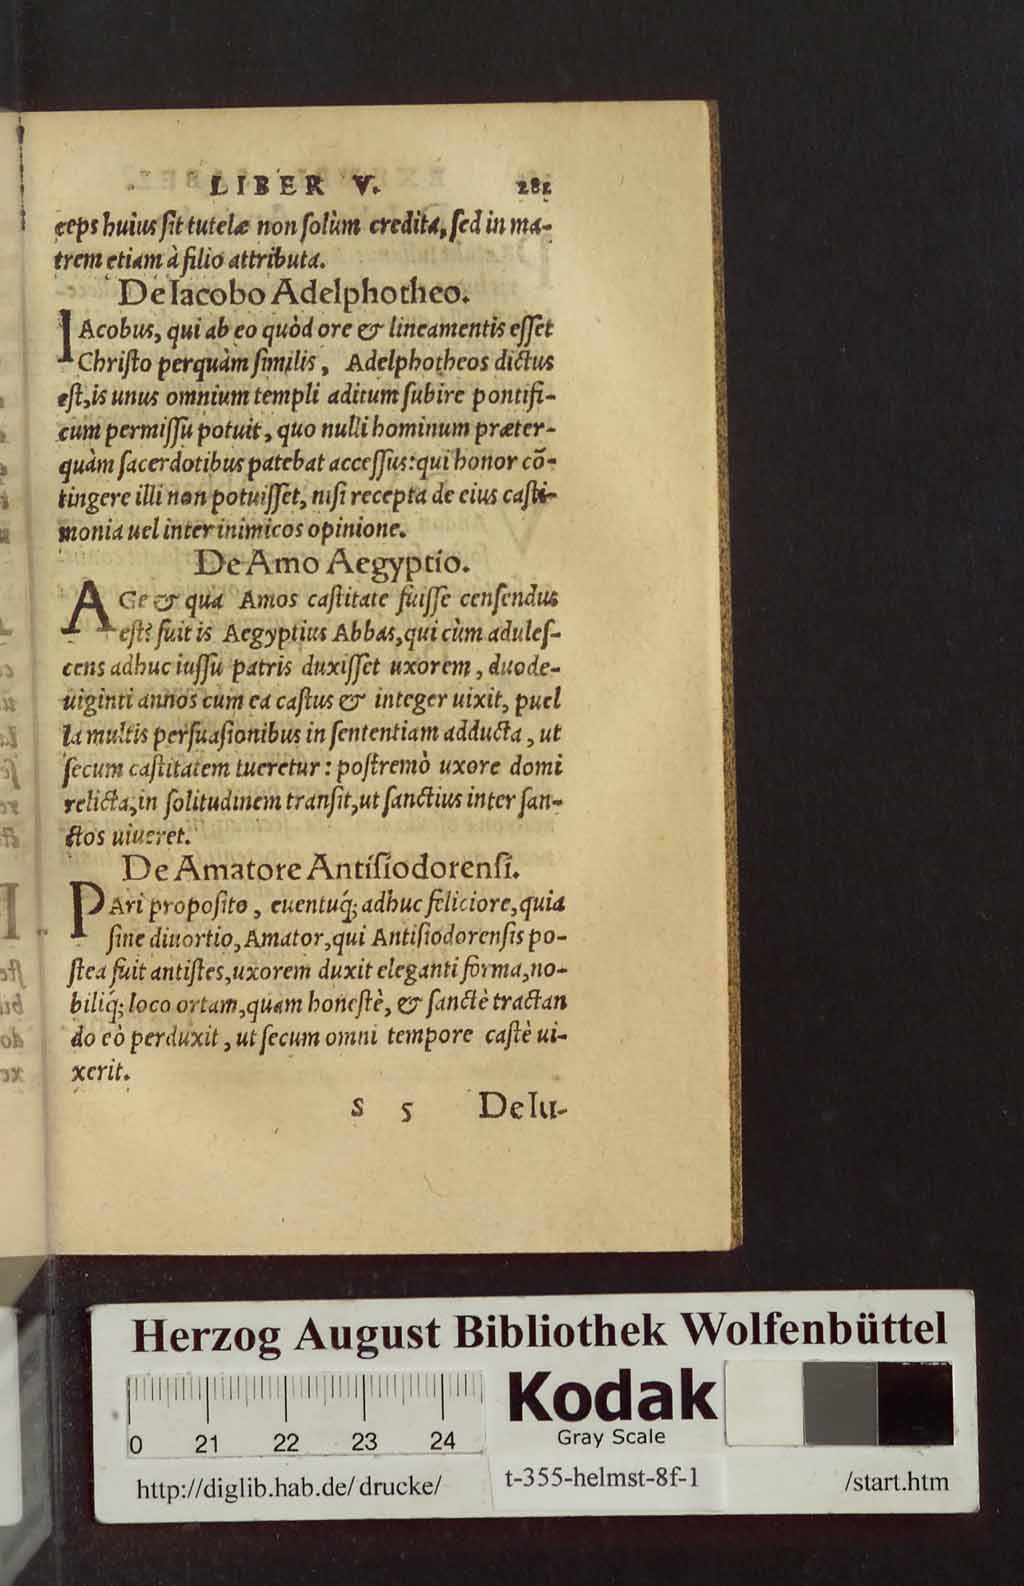 LIBER V. 281
ceps huius sit tutelæ non solùm credita, sed in ma-
trem etiam à filio attributa.
De Iacobo Adelphotheo.
IAcobus, qui ab eo quòd ore & lineamentis esset
Christo perquàm similis, Adelphotheos dictus
est, is unus omnium templi aditum subire pontifi-
cum permissu potuit, quo nulli hominum præter-
quàm sacerdotibus patebat accessus: qui honor cō-
tingere illi non potuisset, nisi recepta de eius casti-
monia uel inter inimicos opinione.
De Amo Aegyptio.
AGe & qua Amos castitate fuisse censendus
est? fuit is Aegyptius Abbas, qui cùm adules-
cens adhuc iussu patris duxisset uxorem, duode-
uiginti annos cum ea castus & integer uixit, puel
la multis persuasionibus in sententiam adducta, ut
secum castitatem tueretur: postremò uxore domi
relicta, in solitudinem transit, ut sanctius inter san-
ctos uiueret.
De Amatore Antisiodorensi.
PAri proposito, euentuq́; adhuc feliciore, quia
sine diuortio, Amator, qui Antisiodorensis po-
stea fuit antistes, uxorem duxit eleganti forma, no-
biliq́; loco ortam, quam honestè, & sanctè tractan
do eò perduxit, ut secum omni tempore castè ui-
xerit.
S 5 De Iu-
Herzog August Bibliothek Wolfenbüttel
Kodak
Gray Scale
0 21 22 23 24
http://diglib.hab.de/drucke/ t-355-helmst-8f-1 /start.htm